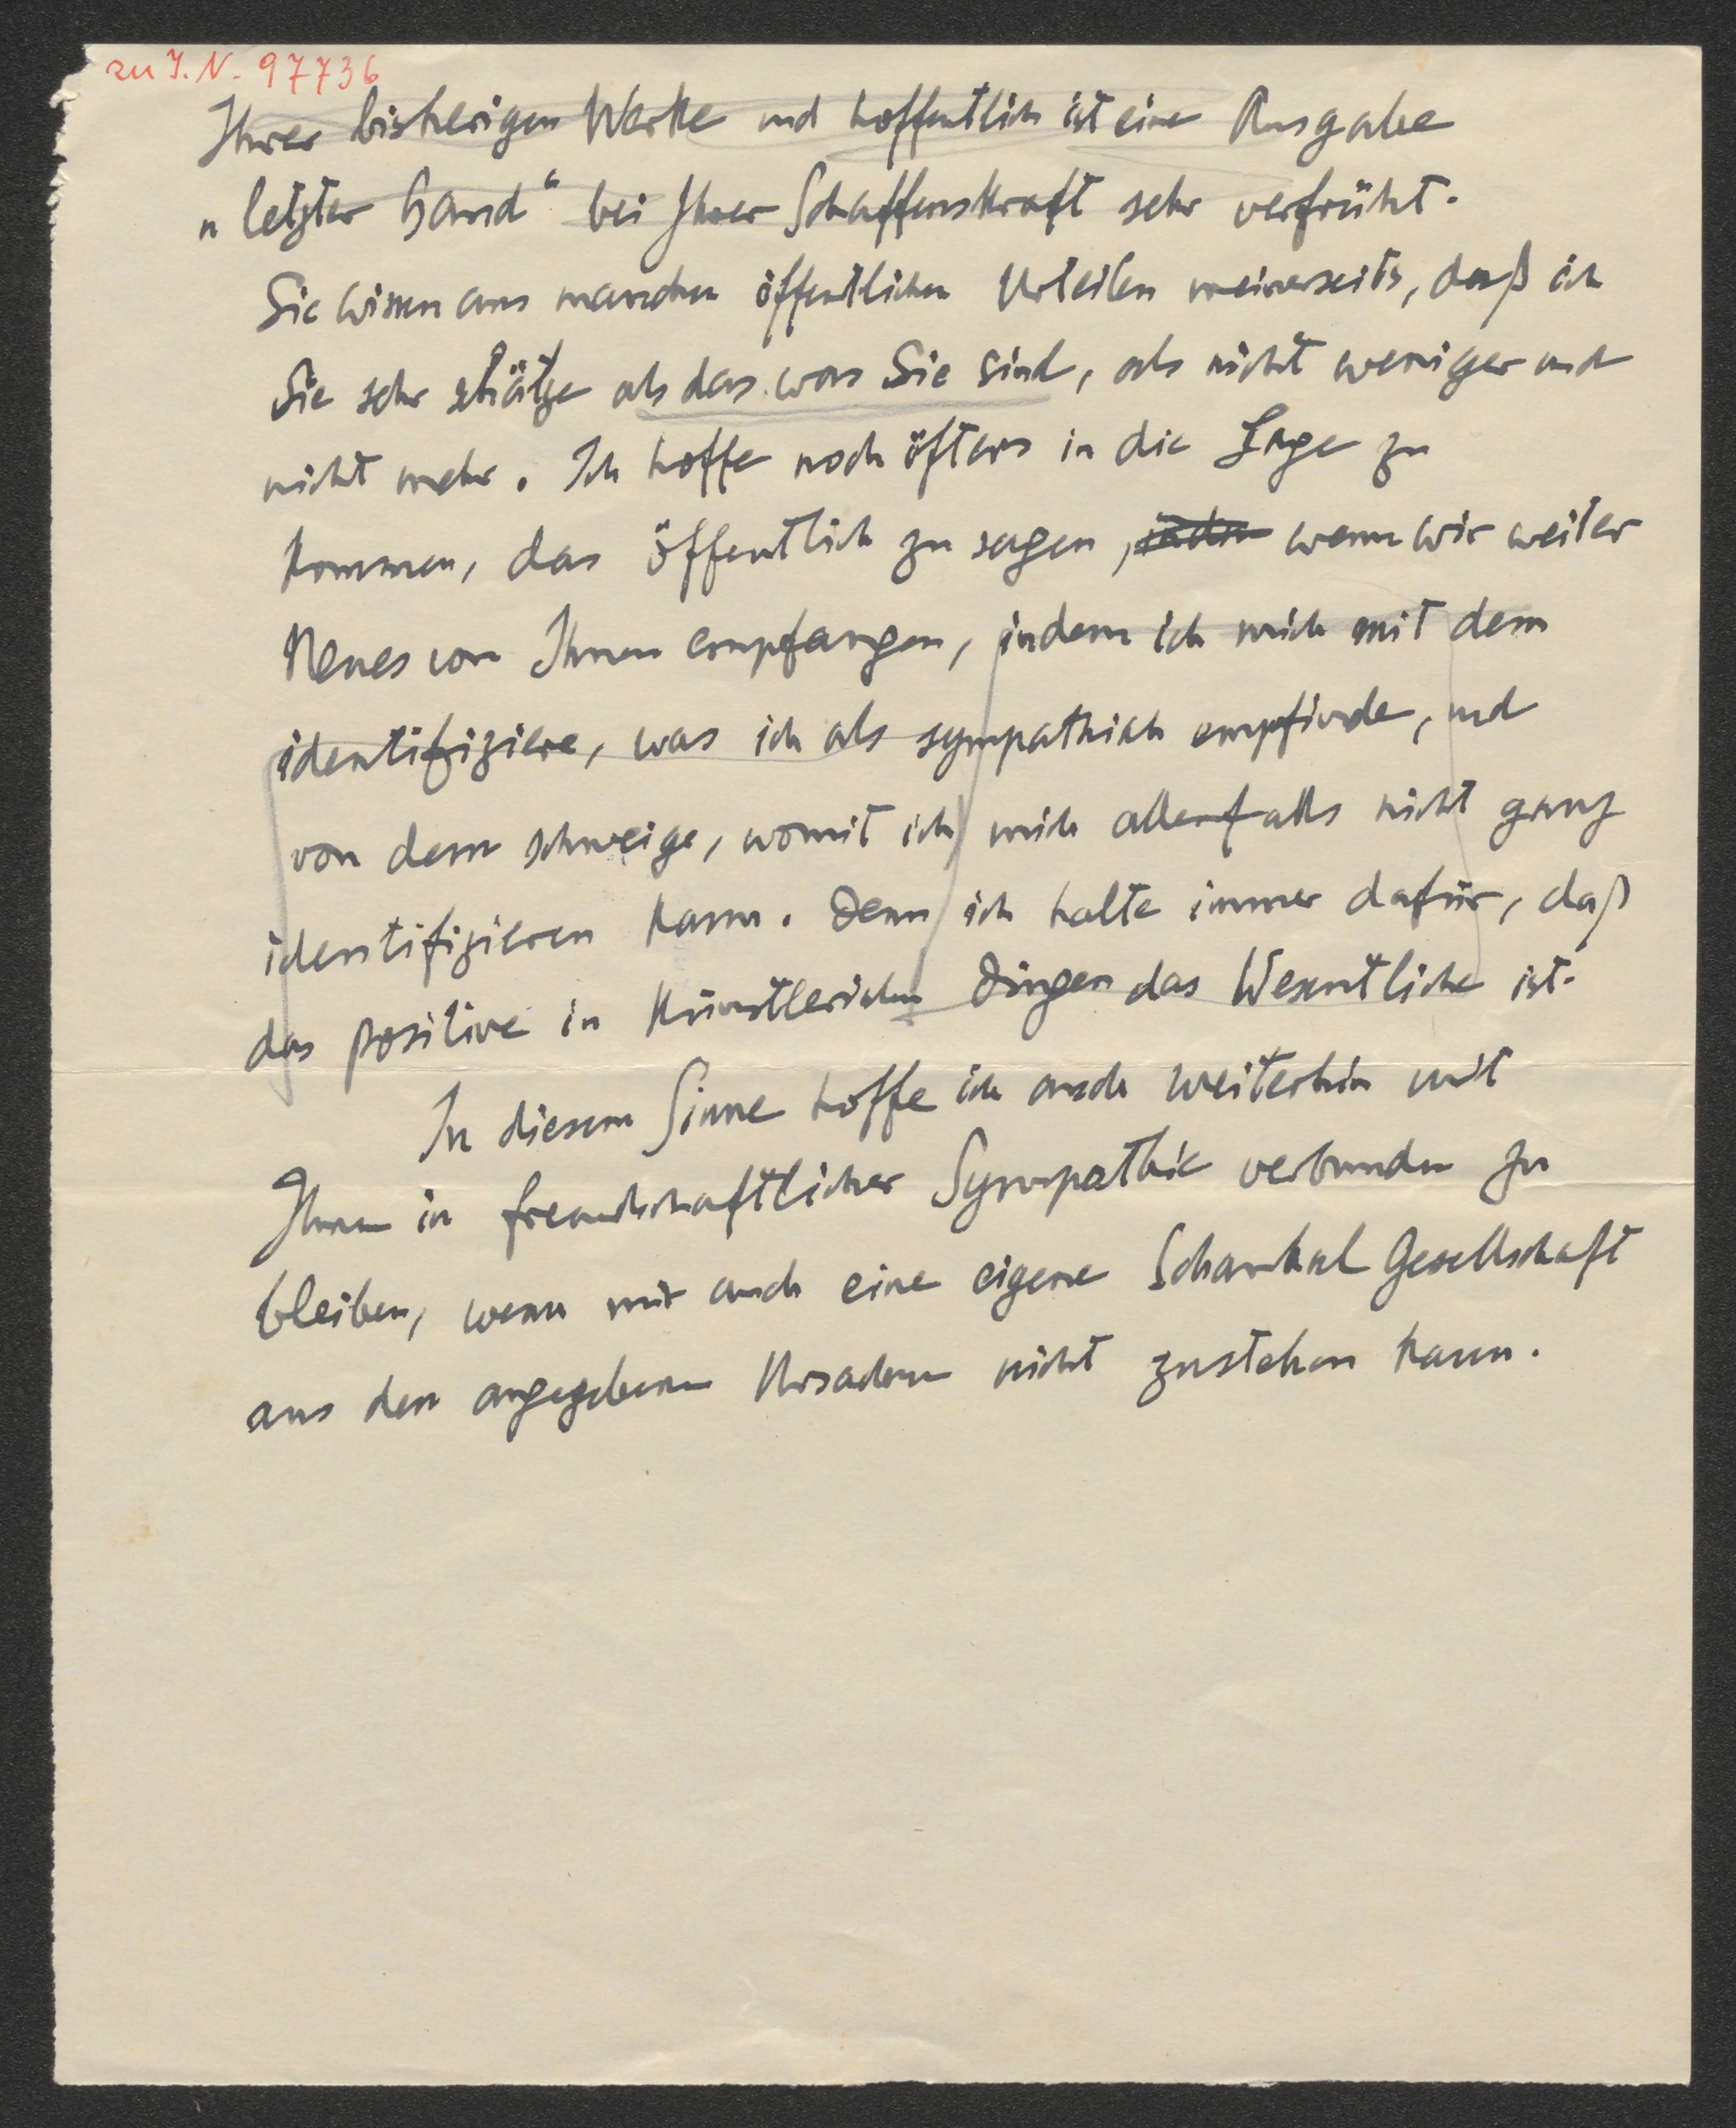 zu I. N. 97736
Ihrer bisherigen Werke und hoffentlich ist eine Ausgabe
„letzter Hand“ bei Ihrer Schaffenskraft sehr verfrüht.
Sie wissen aus manchen öffentlichen Urteilen meinerseits, daß ich
Sie sehr schätze als das was Sie sind, als nicht weniger und
nicht mehr. Ich hoffe noch öfters in die Lage zu
kommen, das öffentlich zu sagen, wenn wir weiter
Neues von Ihnen empfangen, indem ich mich mit dem
identifiziere, was ich als sympathisch empfinde, und
von dem schweige, womit ich mich allenfalls nicht ganz
identifizieren kann. Denn ich halte immer dafür, daß
das positive in künstlerischen Dingen das Wesentliche ist.
In diesem Sinne hoffe ich auch weiterhin mit
Ihnen in freundschaftlicher Sympathie verbunden zu
bleiben, wenn mir auch eine eigene Schaukal Gesellschaft
aus den angegebenen Ursachen nicht zustehen kann.